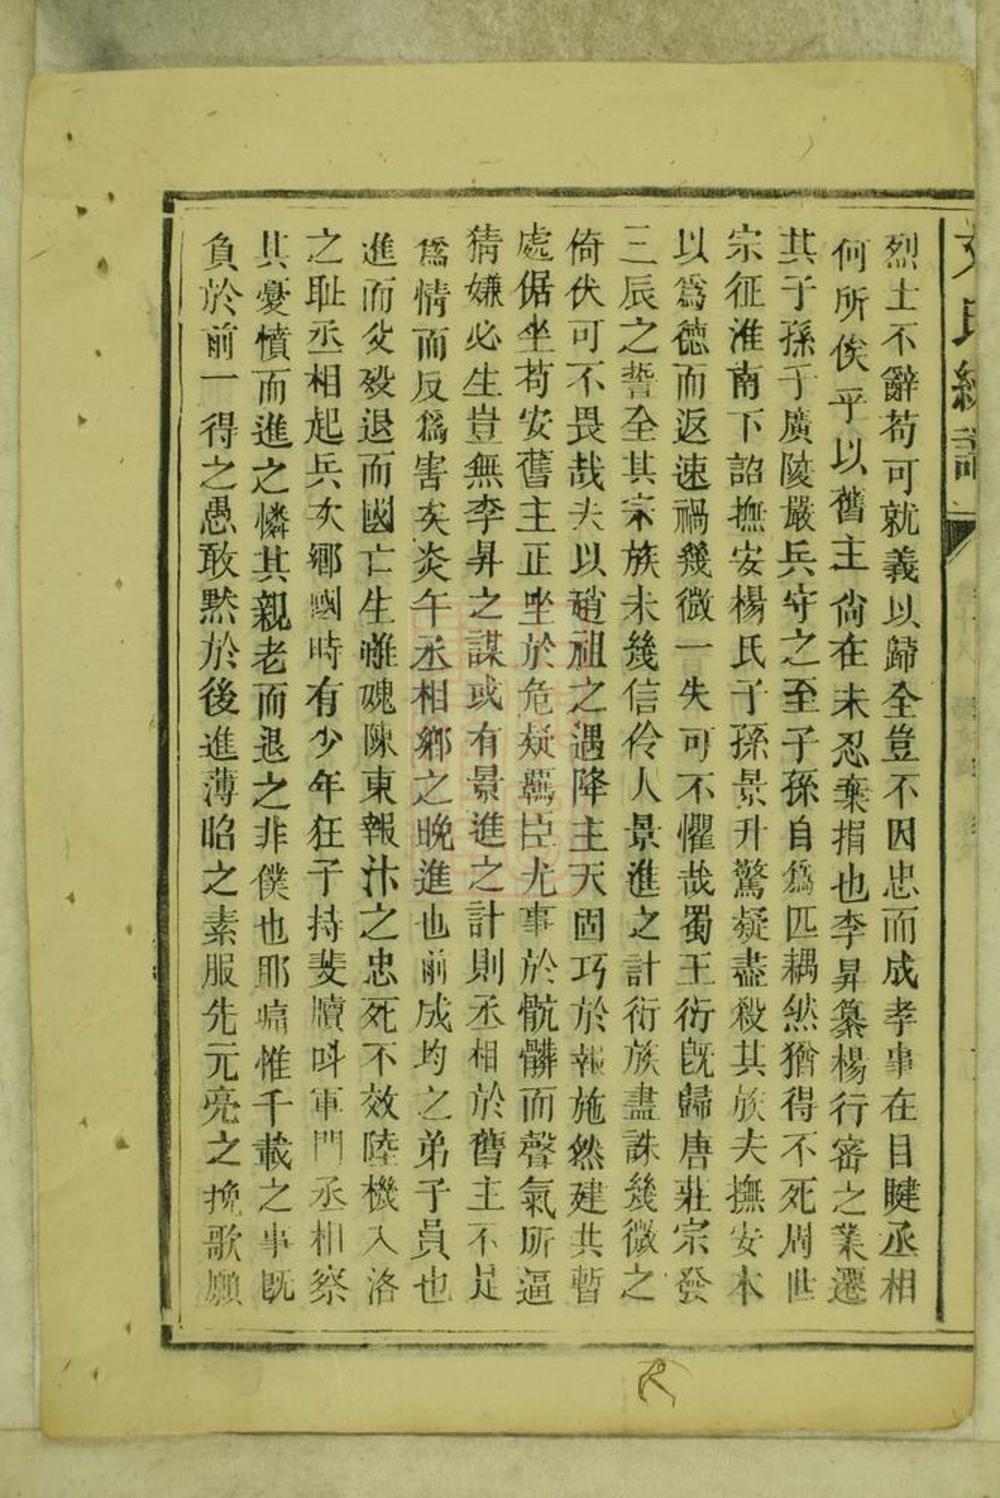 烈士不辭苟可就義以歸全豈不因忠而成孝事在目睫丞相
何所俟乎以舊主尙在未忍棄捐也李昇纂楊行密之業遷
其子孫于廣陵嚴兵守之至子孫自爲匹耦然猶得不死周世
宗征淮南下詔撫安楊氏子孫景升驚疑盡殺其族夫撫安本
以爲德而返速禍幾微一失可不懼哉蜀王衍旣歸唐莊宗發
三辰之誓全其宗族未幾信伶人景進之計衍族盡誅幾微之
倚伏可不畏哉夫以硝祖之遇降主天固巧於報施然建共暫
處倨坐苟安舊主正坐於危疑羈臣尤事於骯髒而聲氣所逼
猜嫌必生豈無李昇之謀或有景進之計則丞相於舊主不足
爲情而反爲害矣炎午丞相鄉之晚進也前成均之弟子員也
進而父歿退而國亡生雖愧陳東報汴之忠死不效陸機入洛
之耻丞相起兵次鄉國時有少年狂子持斐牘呌軍門丞相察
其憂憤而進之憐其親老而退之非僕也耶痛惟千載之事旣
負於前一得之愚敢黙於後進薄昭之素服先元亮之挽歌願